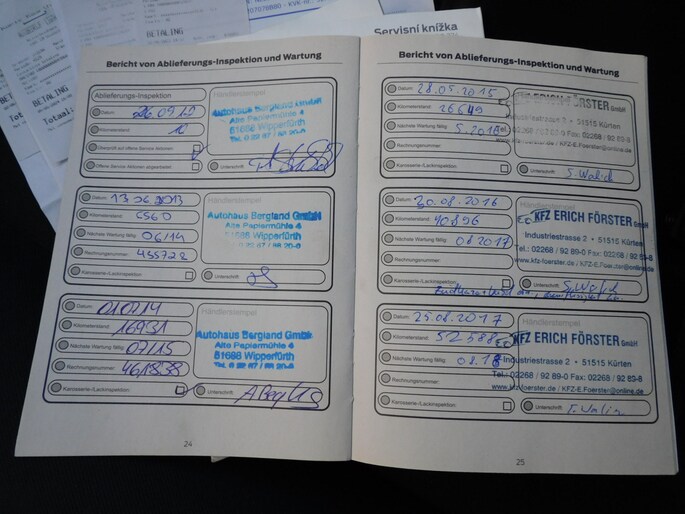 BETALING
BETALING
Totaal
Servisní knížka
Bericht von Ablieferungs-Inspektion und Wartung
Ablieferungs-Inspektion
Datum: 26.09.12
Kilometerstand: 10
Überprüft auf offene Service Aktionen:
Offene Service Aktionen abgearbeitet:
Händlerstempel
Autohaus Bergland GmbH
Alte Papiermühle 4
51688 Wipperfürth
Unterschrift:
Datum: 13.06.2013
Kilometerstand:
Nächste Wartung fällig: 06/14
Rechnungsnummer: 455728
Karosserie-/Lackinspektion:
Händlerstempel
Autohaus Bergland GmbH
Alte Papiermühle 4
51688 Wipperfürth
Unterschrift:
Datum: 010714
Kilometerstand: 16931
Nächste Wartung fällig: 07/15
Rechnungsnummer:
Karosserie-/Lackinspektion:
Händlerstempel
Autohaus Bergland GmbH
Alte Papiermühle 4
51688 Wipperfürth
Unterschrift:
24
Bericht von Ablieferungs-Inspektion und Wartung
Datum: 28.05.2015
Kilometerstand: 26649
Nächste Wartung fällig: 5.2016
Rechnungsnummer:
Karosserie-/Lackinspektion:
Händlerstempel
KFZ ERICH FÖRSTER GmbH
Industriestrasse 2 • 51515 Kürten
Tel.: 02268 / 92 89-0 Fax: 02268 / 92 89-8
www.kfz-foerster.de / KFZ-E.Foerster@online.de
Unterschrift:
Datum: 30.08.2016
Kilometerstand: 40896
Nächste Wartung fällig: 08.2017
Rechnungsnummer:
Karosserie-/Lackinspektion:
Händlerstempel
KFZ ERICH FÖRSTER GmbH
Industriestrasse 2 • 51515 Kürten
Tel.: 02268 / 92 89-0 Fax: 02268 / 92 89-8
www.kfz-foerster.de / KFZ-E.Foerster@online.de
Unterschrift:
Datum: 25.08.2017
Kilometerstand: 52588
Nächste Wartung fällig: 08.18
Rechnungsnummer:
Karosserie-/Lackinspektion:
Händlerstempel
KFZ ERICH FÖRSTER GmbH
Industriestrasse 2 • 51515 Kürten
Tel.: 02268 / 92 89-0 Fax: 02268 / 92 89-8
www.kfz-foerster.de / KFZ-E.Foerster@online.de
Unterschrift:
25